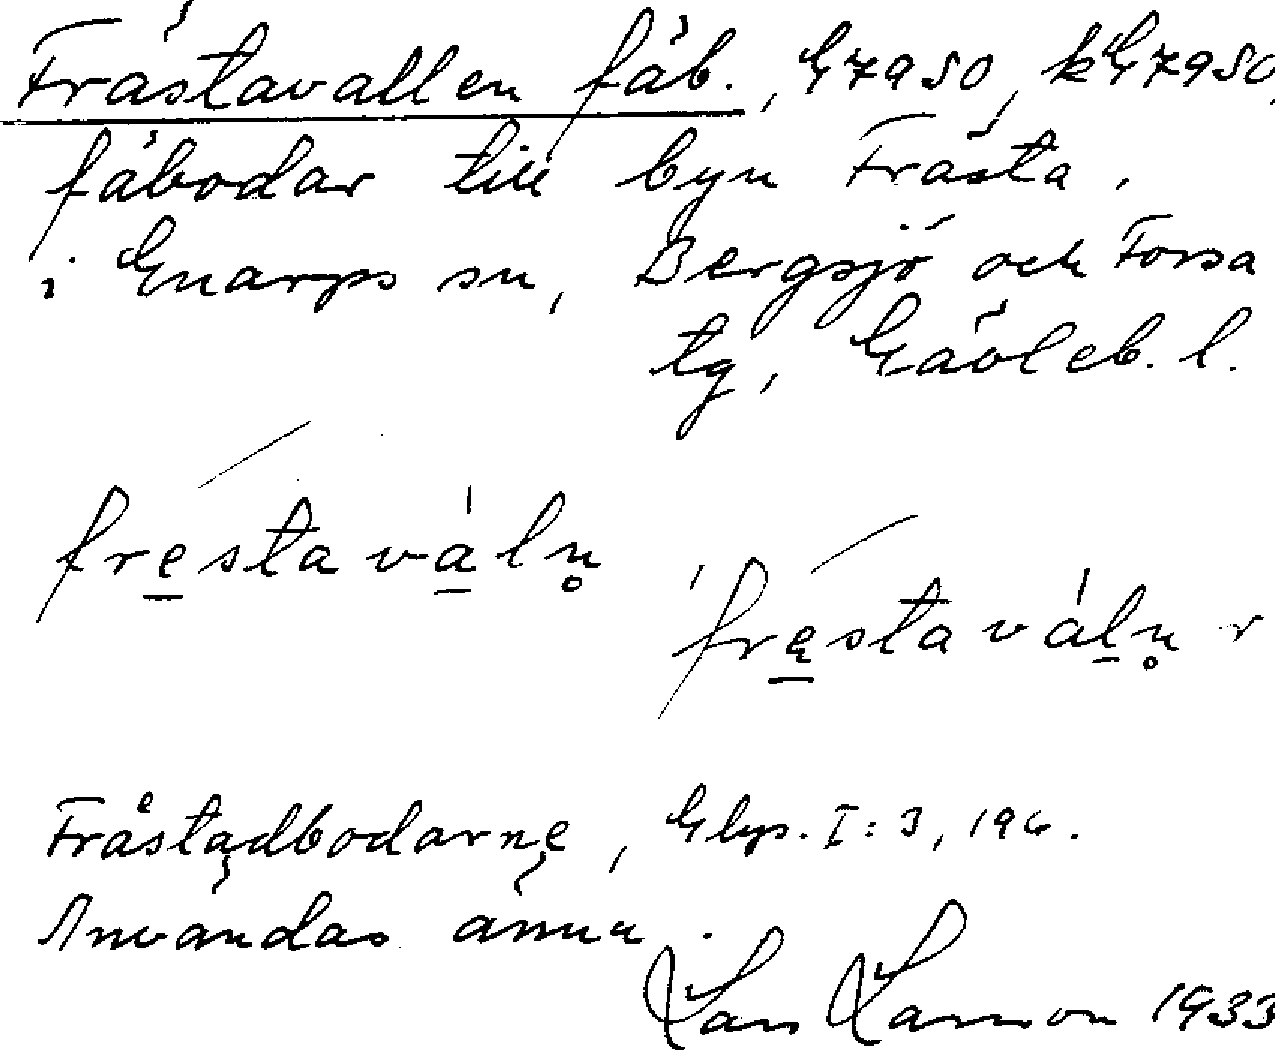 Frästavallen fäb., G7950, kG7950,
fäbodar till byn Frästa,
i Gnarps sn, Bergsjö och Forsa
tg, Gävleb. l.
fre̲stava̲ln̥
frę̲staval̲n̥
Fråstadbodarne, Glps. I:3, 196.
Användas ännu.
Lars Larsson 1933